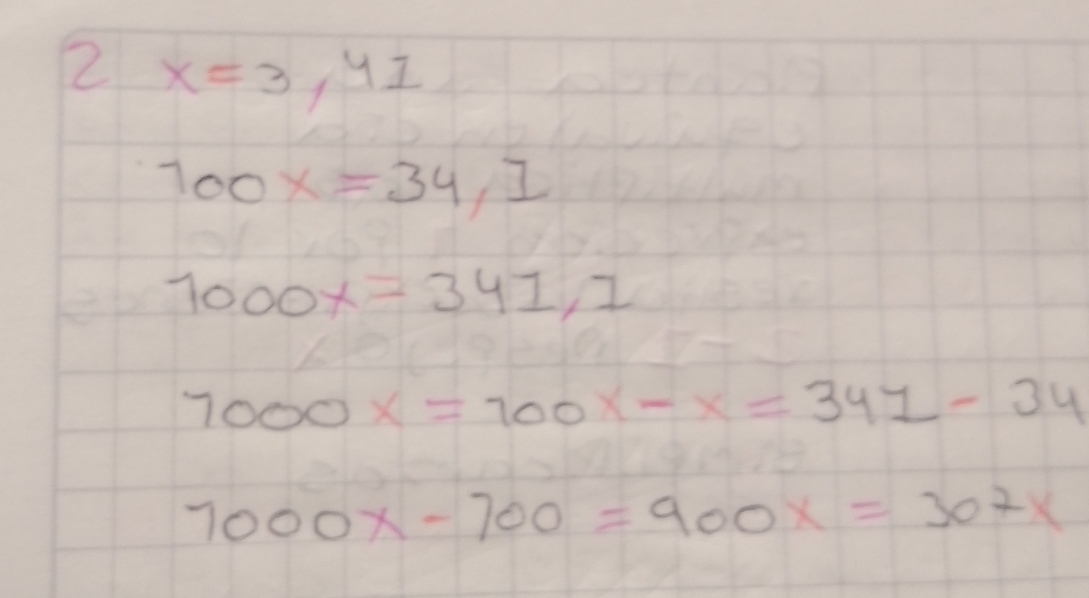 2 x = 3,41
100x = 34,1
1000x = 341,1
1000x = 100x - x = 341 - 34
1000x - 100 = 900x = 307x